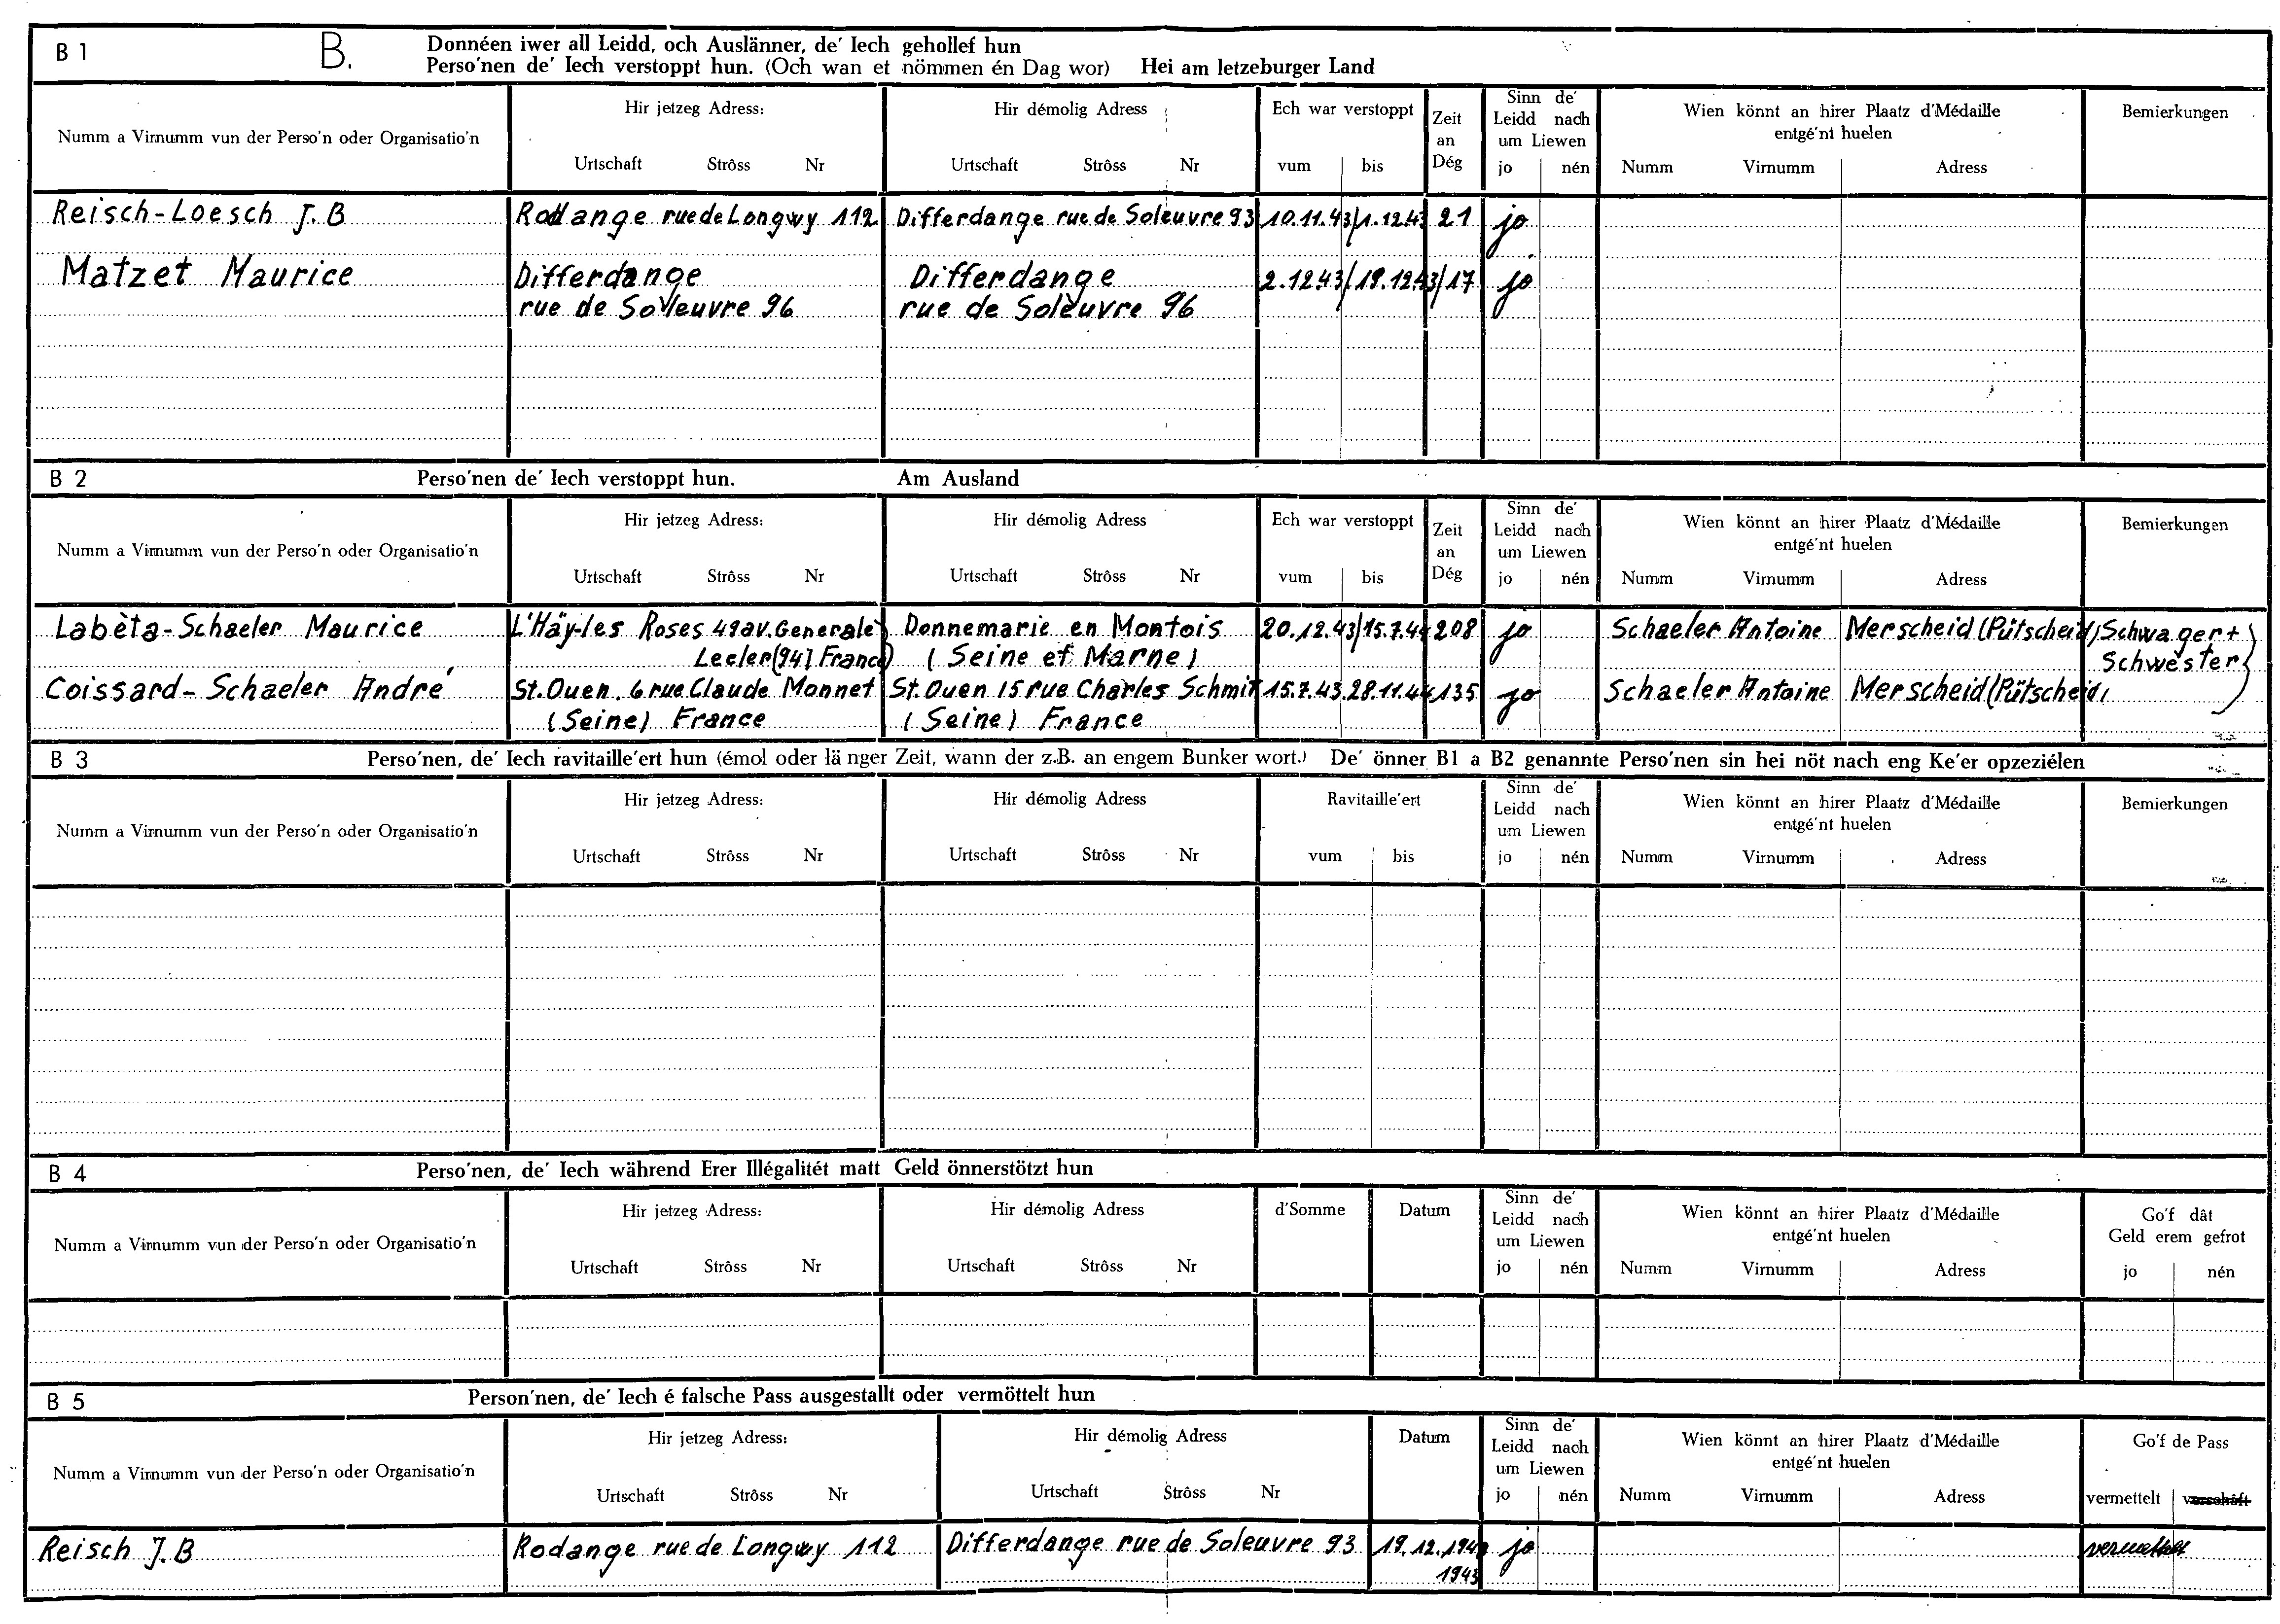 B 1 B. Donnéen iwer all Leidd, och Auslänner, de' Iech gehollef hun
Perso'nen de' Iech verstoppt hun. (Och wan et nömmen én Dag wor) Hei am letzeburger Land
Numm a Virnumm vun der Perso'n oder Organisatio'n
Hir jetzeg Adress:
Urtschaft Strôss Nr
Hir démolig Adress
Urtschaft Strôss Nr
Ech war verstoppt
vum bis
Zeit
an
Dég
Sinn de'
Leidd nach
um Liewen
jo nén
Wien könnt an hirer Plaatz d'Médaille
entgé'nt huelen
Numm Virnumm Adress
Bemierkungen
Reisch-Loesch J.B Rodange rue de Longwy 112 Differdange rue de Soleuvre 93 10.11.43/1.12.43 21 jo
Matzet Maurice Differdange Differdange 2.12.43/19.12.43/17 jo
rue de Soleuvre 96 rue de Soleuvre 96
B 2 Perso'nen de' Iech verstoppt hun. Am Ausland
Numm a Virnumm vun der Perso'n oder Organisatio'n
Hir jetzeg Adress:
Urtschaft Strôss Nr
Hir démolig Adress
Urtschaft Strôss Nr
Ech war verstoppt
vum bis
Zeit
an
Dég
Sinn de'
Leidd nach
um Liewen
jo nén
Wien könnt an hirer Plaatz d'Médaille
entgé'nt huelen
Numm Virnumm Adress
Bemierkungen
Labèta-Schaeler Maurice L'Häy-les Roses 49 av. Generale Donnemarie en Montois 20.12.43/15.7.44 208 jo Schaeler Antoine Merscheid (Pütscheid) Schwager +
Lecler (94) France (Seine et Marne) Schwester
Coissard-Schaeler André St. Ouen 6 rue Claude Monnet St. Ouen 15 rue Charles Schmit 15.7.43 28.11.44 135 jo Schaeler Antoine Merscheid (Pütscheid)
(Seine) France (Seine) France
B 3 Perso'nen, de' Iech ravitaille'ert hun (émol oder länger Zeit, wann der z.B. an engem Bunker wort.) De' önner B1 a B2 genannte Perso'nen sin hei nöt nach eng Ke'er opzeziélen
Numm a Virnumm vun der Perso'n oder Organisatio'n
Hir jetzeg Adress:
Urtschaft Strôss Nr
Hir démolig Adress
Urtschaft Strôss Nr
Ravitaille'ert
vum bis
Sinn de'
Leidd nach
um Liewen
jo nén
Wien könnt an hirer Plaatz d'Médaille
entgé'nt huelen
Numm Virnumm Adress
Bemierkungen
B 4 Perso'nen, de' Iech während Erer Illégalitét matt Geld önnerstötzt hun
Numm a Virnumm vun der Perso'n oder Organisatio'n
Hir jetzeg Adress:
Urtschaft Strôss Nr
Hir démolig Adress
Urtschaft Strôss Nr
d'Somme
Datum
Sinn de'
Leidd nach
um Liewen
jo nén
Wien könnt an hirer Plaatz d'Médaille
entgé'nt huelen
Numm Virnumm Adress
Go'f dât
Geld erem gefrot
jo nén
B 5 Person'nen, de' Iech é falsche Pass ausgestallt oder vermöttelt hun
Numm a Virnumm vun der Perso'n oder Organisatio'n
Hir jetzeg Adress:
Urtschaft Strôss Nr
Hir démolig Adress
Urtschaft Strôss Nr
Datum
Sinn de'
Leidd nach
um Liewen
jo nén
Wien könnt an hirer Plaatz d'Médaille
entgé'nt huelen
Numm Virnumm Adress
Go'f de Pass
vermettelt verschâft
Reisch J.B Rodange rue de Longwy 112 Differdange rue de Soleuvre 93 19.12. jo vermettelt
1943